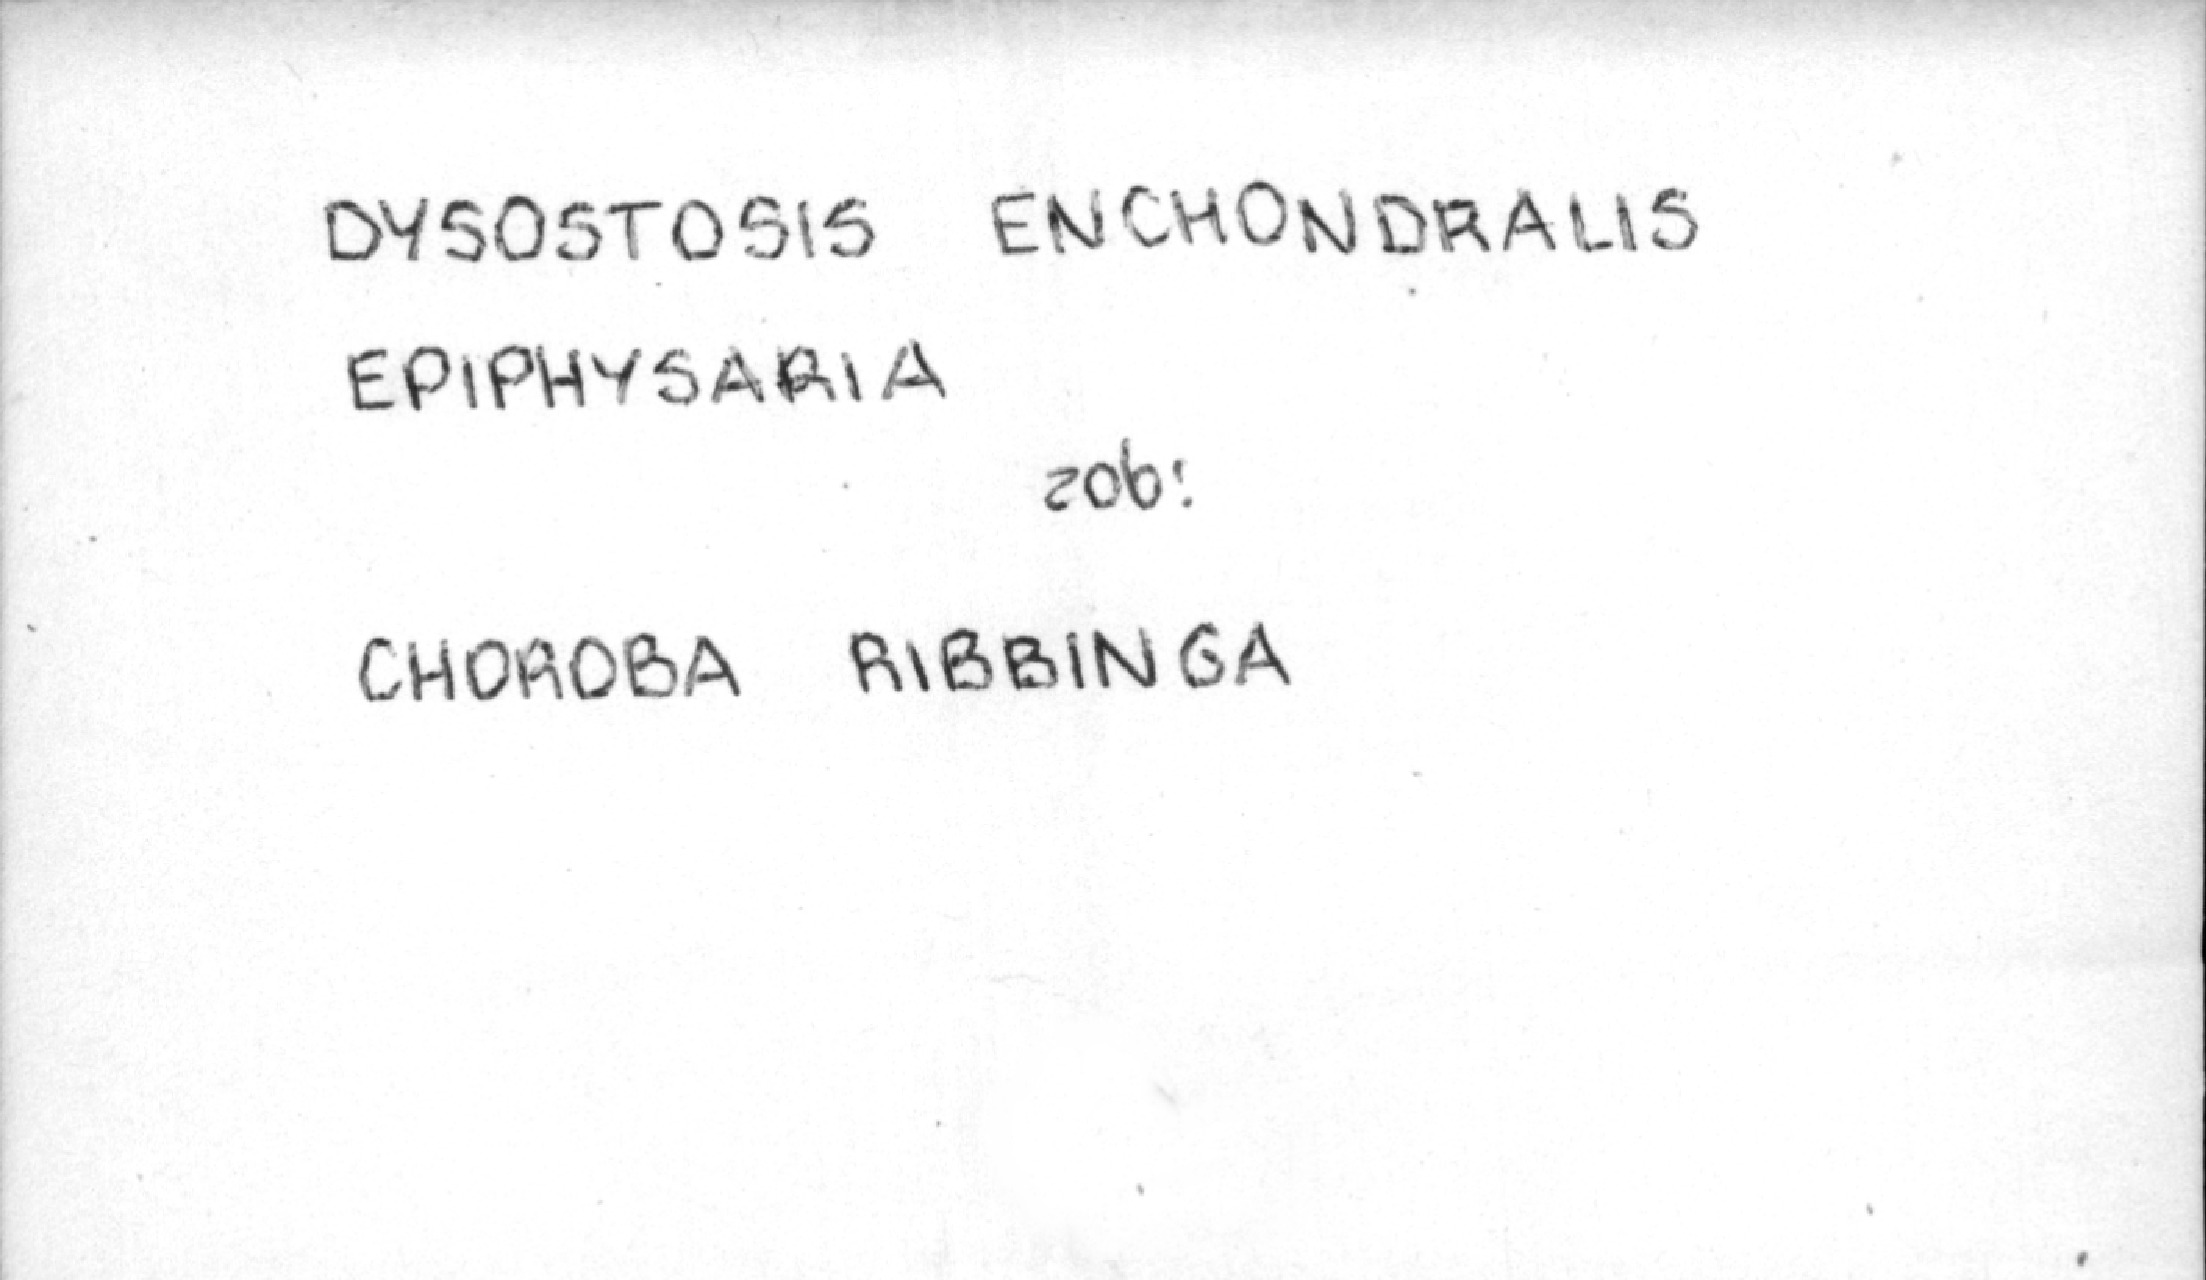 DYSOSTOSIS ENCHONDRALIS
EPIPHYSARIA
zob:
CHOROBA RIBBINGA